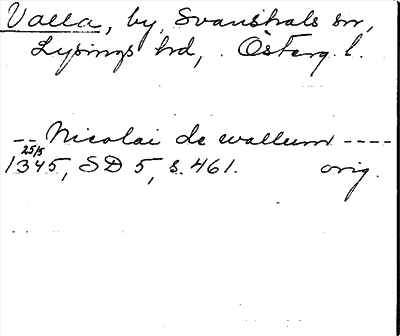 Valla, by, Svanshals sn,
Lysings hd, Österg. l.
-- Nicolai de wallum ----
25/5
1345, SD 5, s. 461. orig.